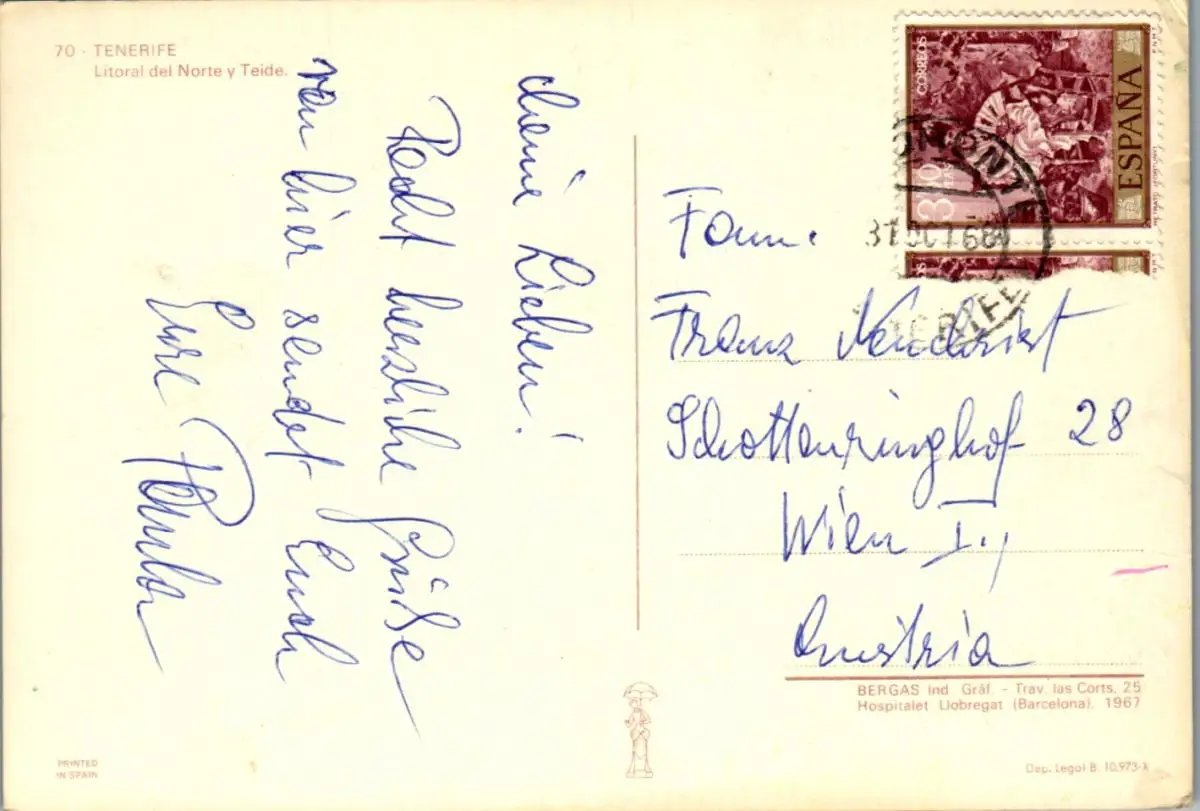 70 - TENERIFE
Litoral del Norte y Teide.
Meine Lieben!
Recht herzliche Grüße
von hier sendet Euch
Eure Paula
CORREOS
3
ESPAÑA
31 OCT 68
TENERIFE
Fam.
Franz
Schottenringhof 28
Wien I.,
Austria
BERGAS Ind. Gráf. - Trav. las Corts, 25
Hospitalet Llobregat (Barcelona), 1967
PRINTED
IN SPAIN
Dep. Legal B. 10.973-X